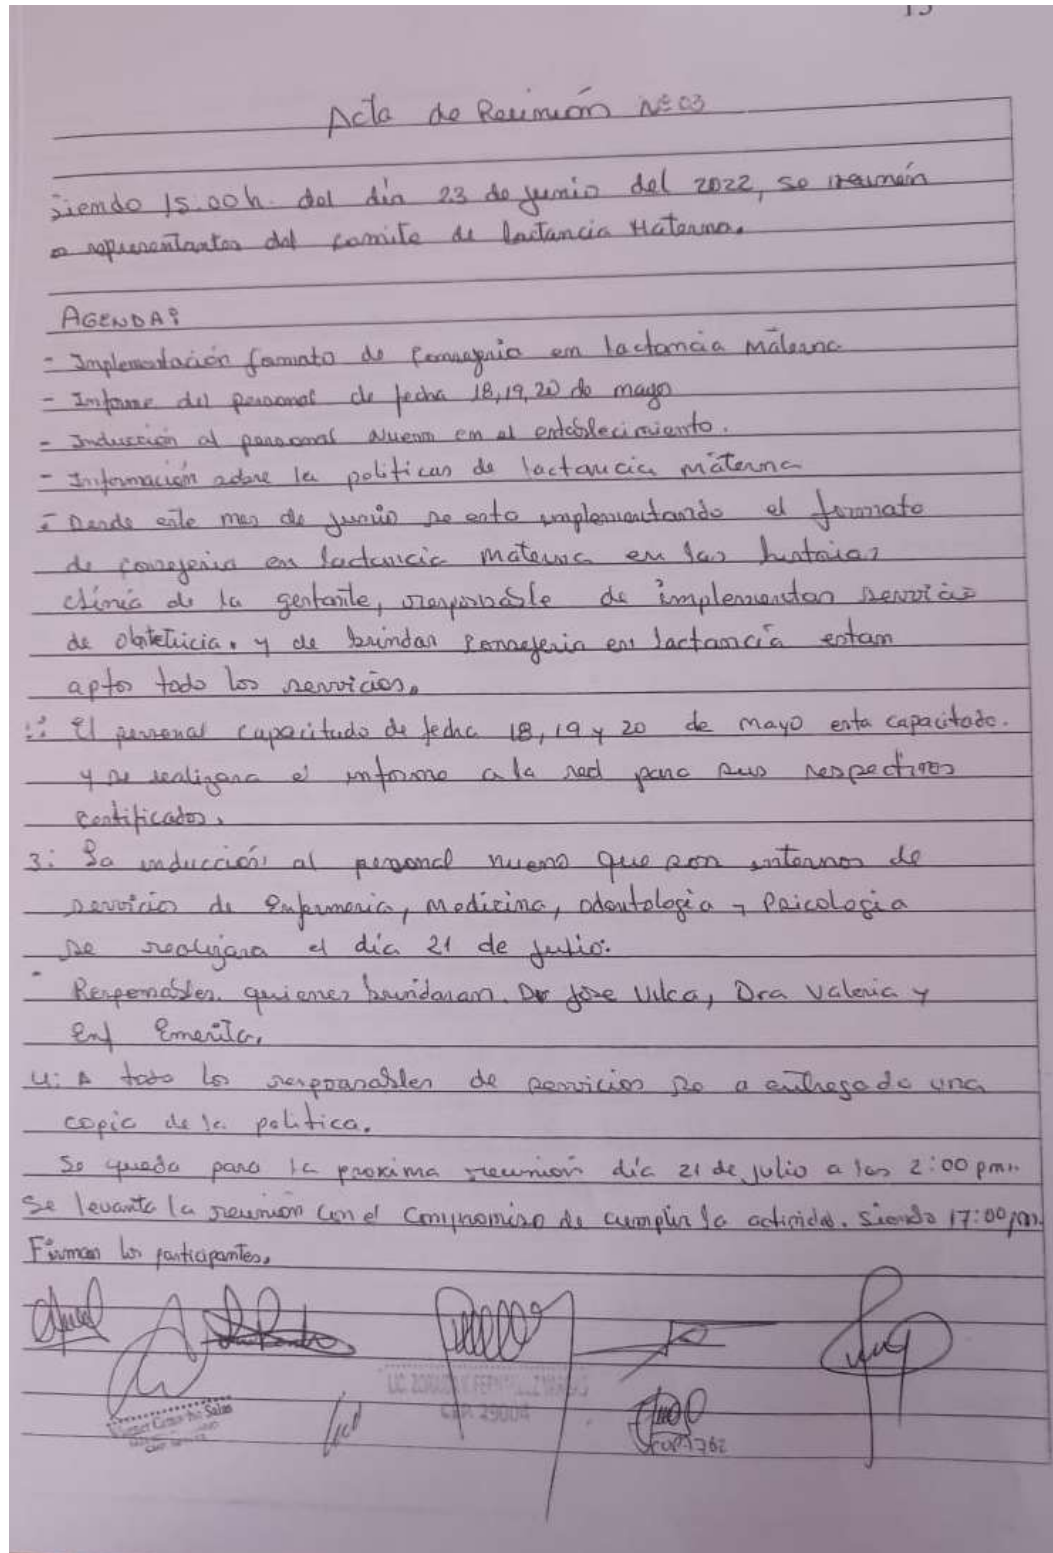 Acta de Reunión Nº 03
Siendo 15.00h. del día 23 de junio del 2022, se reunén
a representantes del comite de lactancia Materna.
AGENDA:
- Implementación formato de Consejeria en lactancia Materna
- Informe del personal de fecha 18,19,20 de mayo
- Inducción al personal Nuevo en el establecimiento.
- Información sobre la politicas de lactancia materna
- Desde este mes de junio se esta implementando el formato
de consejeria en lactancia materna en las historias
clinica de la gestante, responsable de implementar servicio
de obstetricia. y de brindar Consejeria en lactancia estan
aptos todo los servicios.
El personal capacitado de fecha 18, 19 y 20 de mayo esta capacitado.
y se realizara el informe a la red para sus respectivos
certificados.
3: La inducción al personal nuevo que son internos de
servicios de Enfermeria, Medicina, odontologia y Psicologia
se realizara el día 21 de julio.
Responsables. quienes brindaran. Dr Jose Vilca, Dra Valeria y
Enf Emerita.
4: A todo los responsables de servicios se a entregado una
copia de la politica.
Se queda para la proxima reunión día 21 de julio a las 2:00 pm.
Se levanta la reunión con el compromiso de cumplir la actividad. Siendo 17:00 pm.
Firman los participantes.